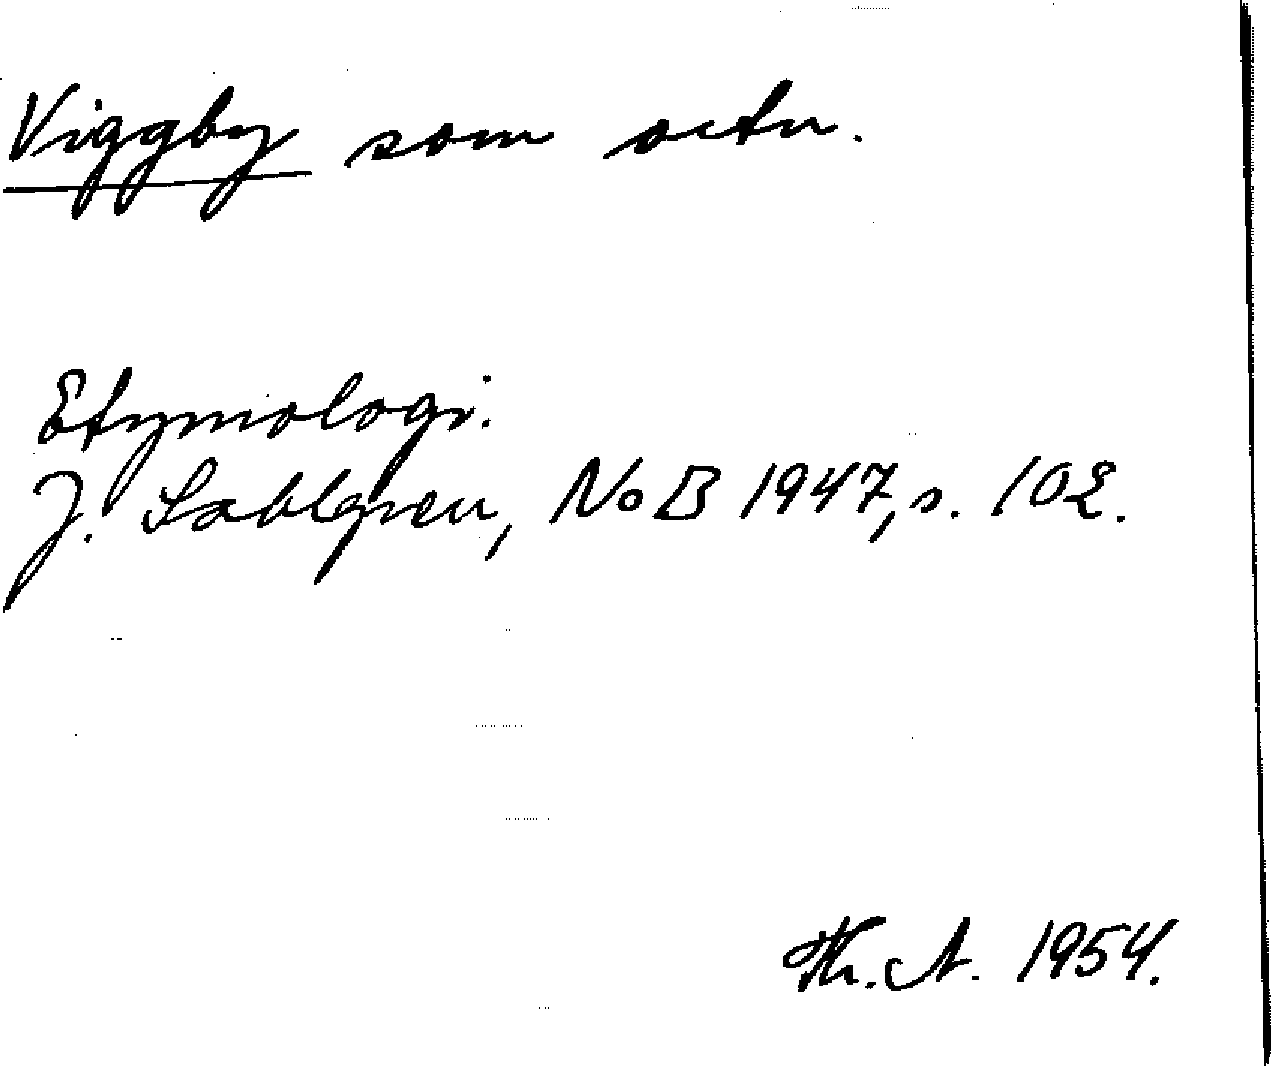 Viggby som ortn.
Etymologi.
J. Sahlgren, NoB 1947, s. 102.
Th. A. 1954.